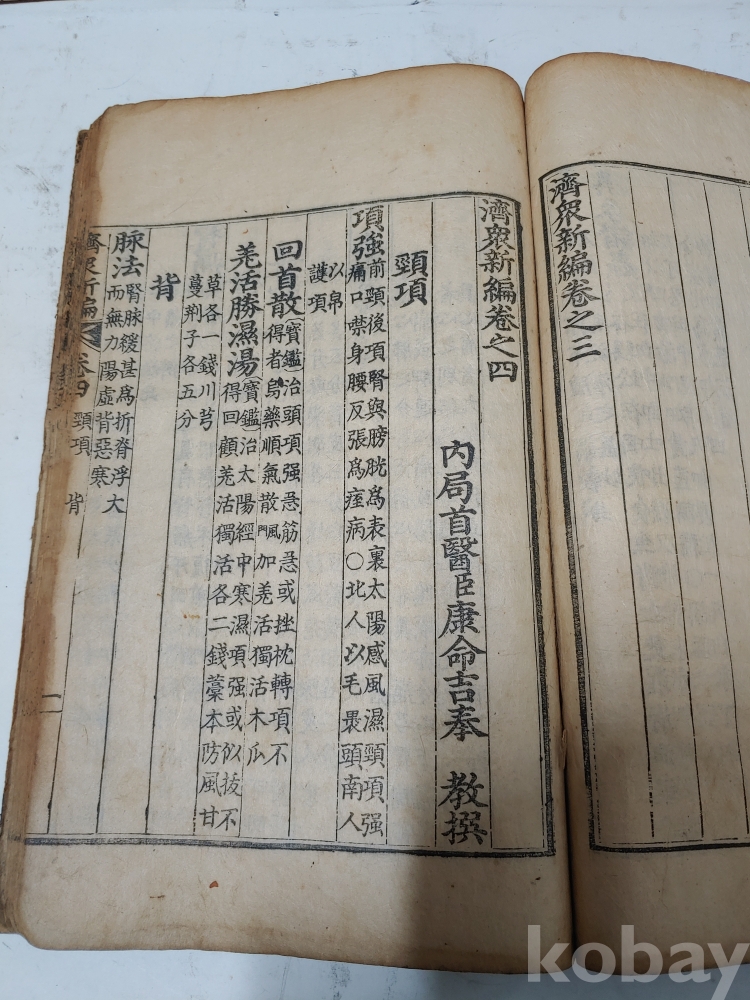 濟眾新編卷之三
濟眾新編卷之四
內局首醫臣康命吉奉 教撰
頸項
項强前頸後項腎與膀胱爲表裏太陽感風濕頸項强
痛口噤身腰反張爲痓病○北人以毛裹頭南人
以帛
護項
回首散寶鑑治頭項强急筋急或挫枕轉項不
得者烏藥順氣散門風加羌活獨活木瓜
羌活勝濕湯寶鑑治太陽經中寒濕項强或似拔不
得回顧羌活獨活各二錢藁本防風甘
草各一錢川芎
蔓荆子各五分
背
脉法腎脉緩甚爲折脊浮大
而無力陽虛背惡寒
濟眾新編 卷四 頸項 背 一
kobay